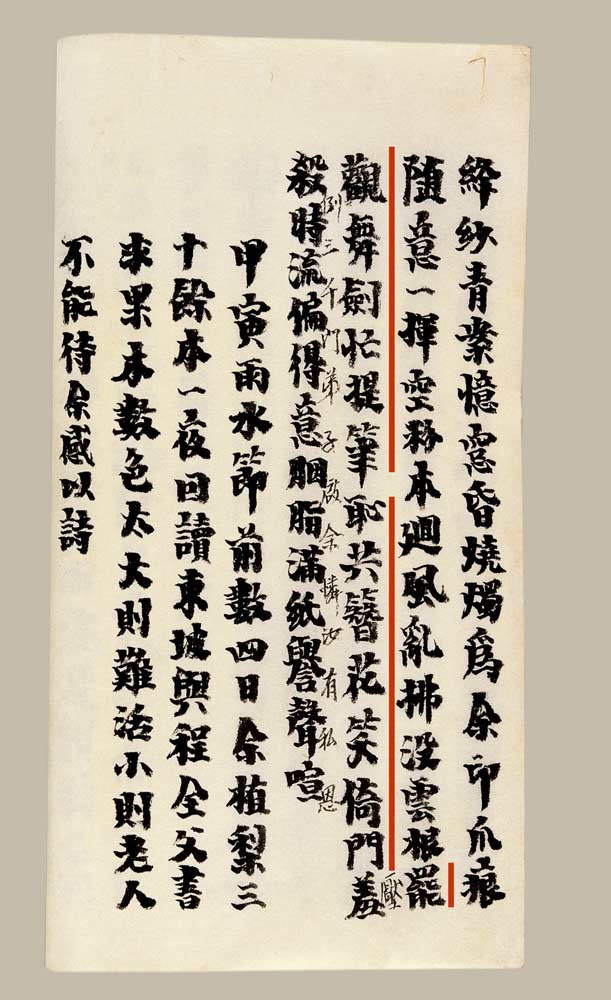 絳紗青案憶窓昏燒燭爲余印爪痕
随意一揮空粉本廻風亂拂没雲根罷
觀舞劍忙提筆恥共簪花笑倚門羞
壓
倒三千門弟子啟余憐汝有私恩
殺時流偏得意胭脂滿紙譽聲喧
甲寅雨水節前數四日余植梨三
十餘本一夜回讀東坡與程全父書
求果木數色太大則難活小則老人
不能待余感以詩